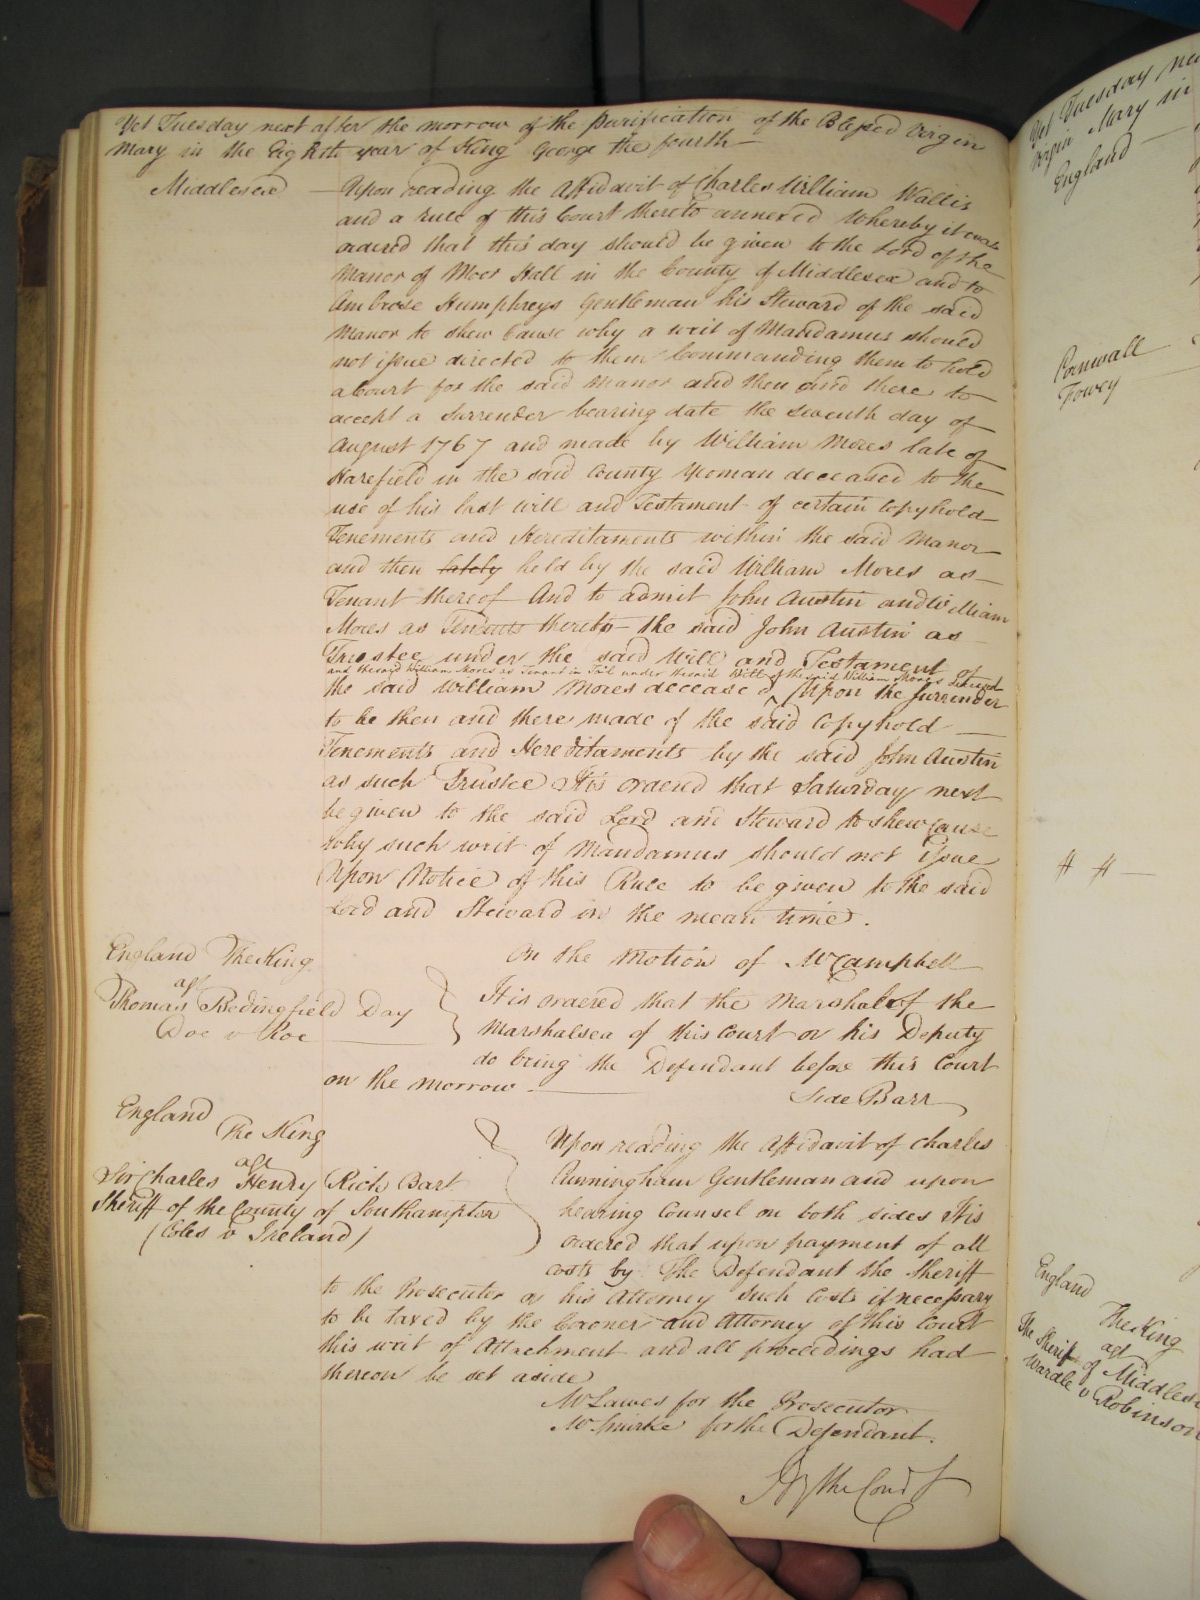 Yet Tuesday next after the morrow of the purification of the Blessed Virgin
Mary in the Eighth year of King George the fourth
Middlesex Upon reading the Affidavit of Charles William Wallis
and a rule of this Court thereto annexed whereby it was
ordered that this day should be given to the Lord of the
Manor of Moor Hall in the County of Middlesex and to
Ambrose Humphreys Gentleman his Steward of the said
Manor to shew Cause why a writ of Mandamus should
not issue directed to them Commanding them to hold
a Court for the said Manor and then and there to
accept a Surrender bearing date the seventh day of
August 1767 and made by William Mores late of
Harefield in the said County Yeoman deceased to the
use of his last will and Testament of certain Copyhold
Tenements and Hereditaments within the said Manor
and then lately held by the said William Mores as
Tenant thereof And to admit John Austin and William
Mores as Tenants thereto the said John Austin as
Trustee under the said Will and Testament of
and the said William Mores as Tenant in Tail under the said Will of the said William Mores deceased
the said William Mores deceased Upon the Surrender
to be then and there made of the said Copyhold
Tenements and Hereditaments by the said John Austin
as such Trustee It is ordered that Saturday next
be given to the said Lord and Steward to shew Cause
why such writ of Mandamus should not issue
Upon Notice of this Rule to be given to the said
Lord and Steward in the mean time.
England The King
agt
Thomas Bedingfield Day
Doe v Roe
On the Motion of Mr Campbell
It is ordered that the Marshal of the
Marshalsea of this Court or his Deputy
do bring the Defendant before this Court
on the morrow
Side Barr
England
The King
agt
Sir Charles Henry Rich Bart
Sheriff of the County of Southampton
(Coles v Ireland)
Upon reading the Affidavit of Charles
Cunningham Gentleman and upon
hearing Counsel on both sides It is
ordered that upon payment of all
costs by The Defendant the Sheriff
to the Prosecutor or his Attorney such Costs if necessary
to be taxed by the Coroner and Attorney of this Court
this writ of Attachment and all proceedings had
thereon be set aside
Mr Lawes for the Prosecutor
Mr Smirke for the Defendant.
By the Court
Yet Tuesday
Virgin Mary in
England
Cornwall
Fowey
England
The King
agt
The Sheriff of Middlesex
Wardle v Robinson